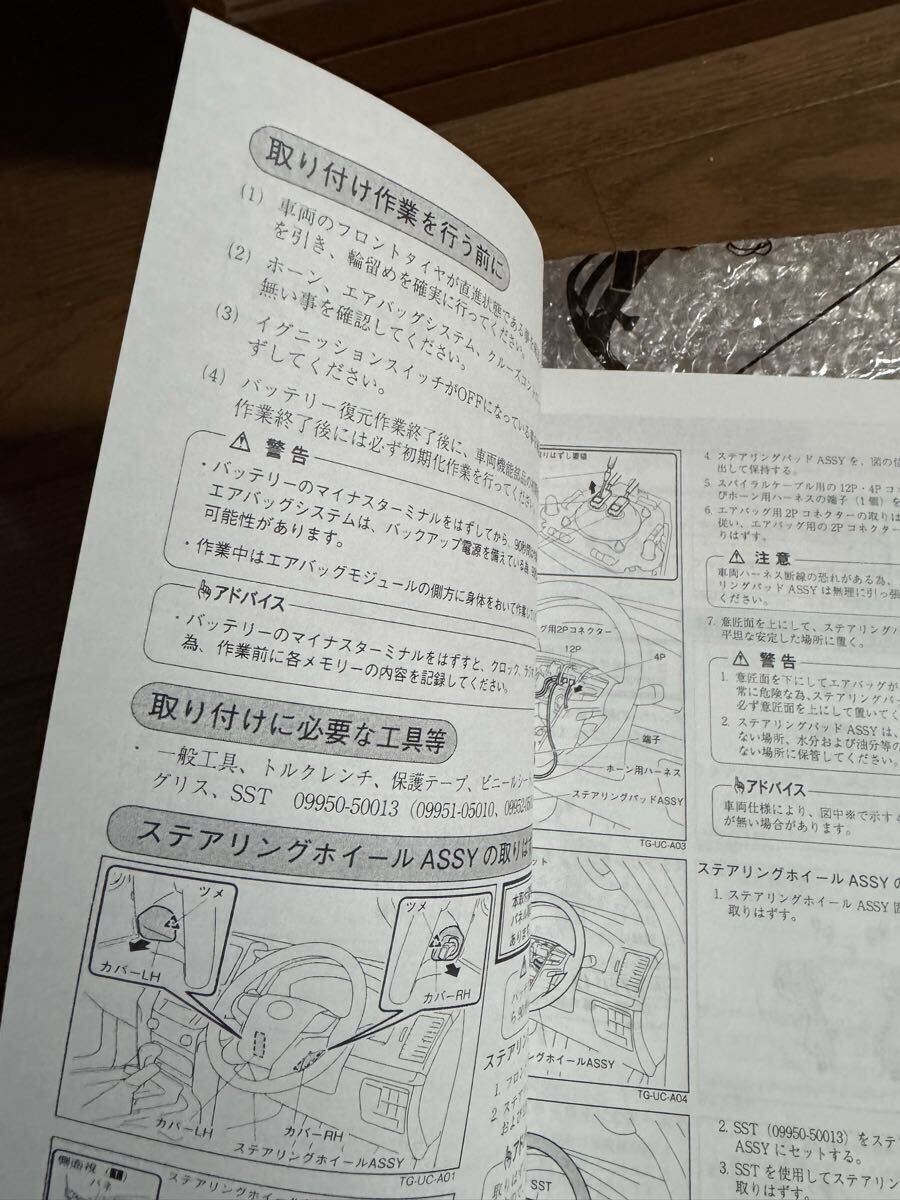 取り付け作業を行う前に
(1) 車両のフロントタイヤが直進状態である事
を引き、輪留めを確実に行ってください。
(2) ホーン、エアバッグシステム、クルーズコン
無い事を確認してください。
(3) イグニッションスイッチがOFFになっている事
ずしてください。
(4) バッテリー復元作業終了後に、車両機能部品の
作業終了後には必ず初期化作業を行ってください。
警告
・バッテリーのマイナスターミナルをはずしてから、90秒
エアバッグシステムは、バックアップ電源を備えている為、
可能性があります。
・作業中はエアバッグモジュールの側方に身体をおいて作業し
アドバイス
・バッテリーのマイナスターミナルをはずすと、クロック、ラジオ
為、作業前に各メモリーの内容を記録してください。
取り付けに必要な工具等
・一般工具、トルクレンチ、保護テープ、ビニールシート
グリス、SST 09950-50013 (09951-05010、
ステアリングホイール ASSY の取りは
ツメ
ツメ
カバーLH
カバーRH
カバーLH
カバーRH
ステアリングホイールASSY
TG-UC-A01
側面視
バネ
ステアリングホイールASSY
取りはずし要領
グ用2Pコネクター
12P
4P
端子
ホーン用ハーネス
ステアリングパッドASSY
TG-UC-A03
4. ステアリングパッド ASSY を、図の位
出して保持する。
5. スパイラルケーブル用の 12P・4P コ
びホーン用ハーネスの端子（1個）を
6. エアバッグ用 2P コネクターの取りは
従い、エアバッグ用の 2P コネクター
りはずす。
注意
車両ハーネス断線の恐れがある為、
リングパッド ASSY は無理に引っ張
ください。
7. 意匠面を上にして、ステアリングパ
平坦な安定した場所に置く。
警告
1. 意匠面を下にしてエアバッグが
常に危険な為、ステアリングパッ
必ず意匠面を上にして置いてく
2. ステアリングパッド ASSY は、
ない場所、水分および油分等の
ない場所に保管してください。
アドバイス
車両仕様により、図中※で示す 4
が無い場合があります。
ステアリングホイール ASSY の
1. ステアリングホイール ASSY 固
取りはずす。
ングホイールASSY
TG-UC-A04
2. SST（09950-50013）をステ
ASSY にセットする。
3. SST を使用してステアリン
取りはずす。
SST